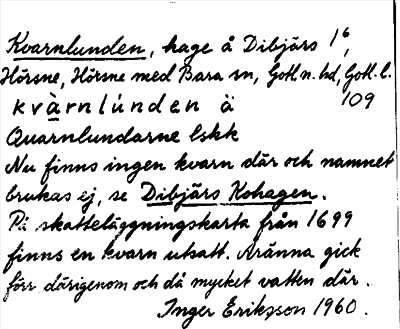 Kvarnlunden, hage å Dibjärs 1⁶,
Hörsne, Hörsne med Bara sn, Gotl. n. hd, Gotl. l.
kvàrnlúnden ä 109
Quarnlundarne lskk
Nu finns ingen kvarn där och namnet
brukas ej, se Dibjärs Kohagen.
På skatteläggningskarta från 1699
finns en kvarn utsatt. Aränna gick
förr därigenom och då mycket vatten där.
Inger Eriksson 1960.